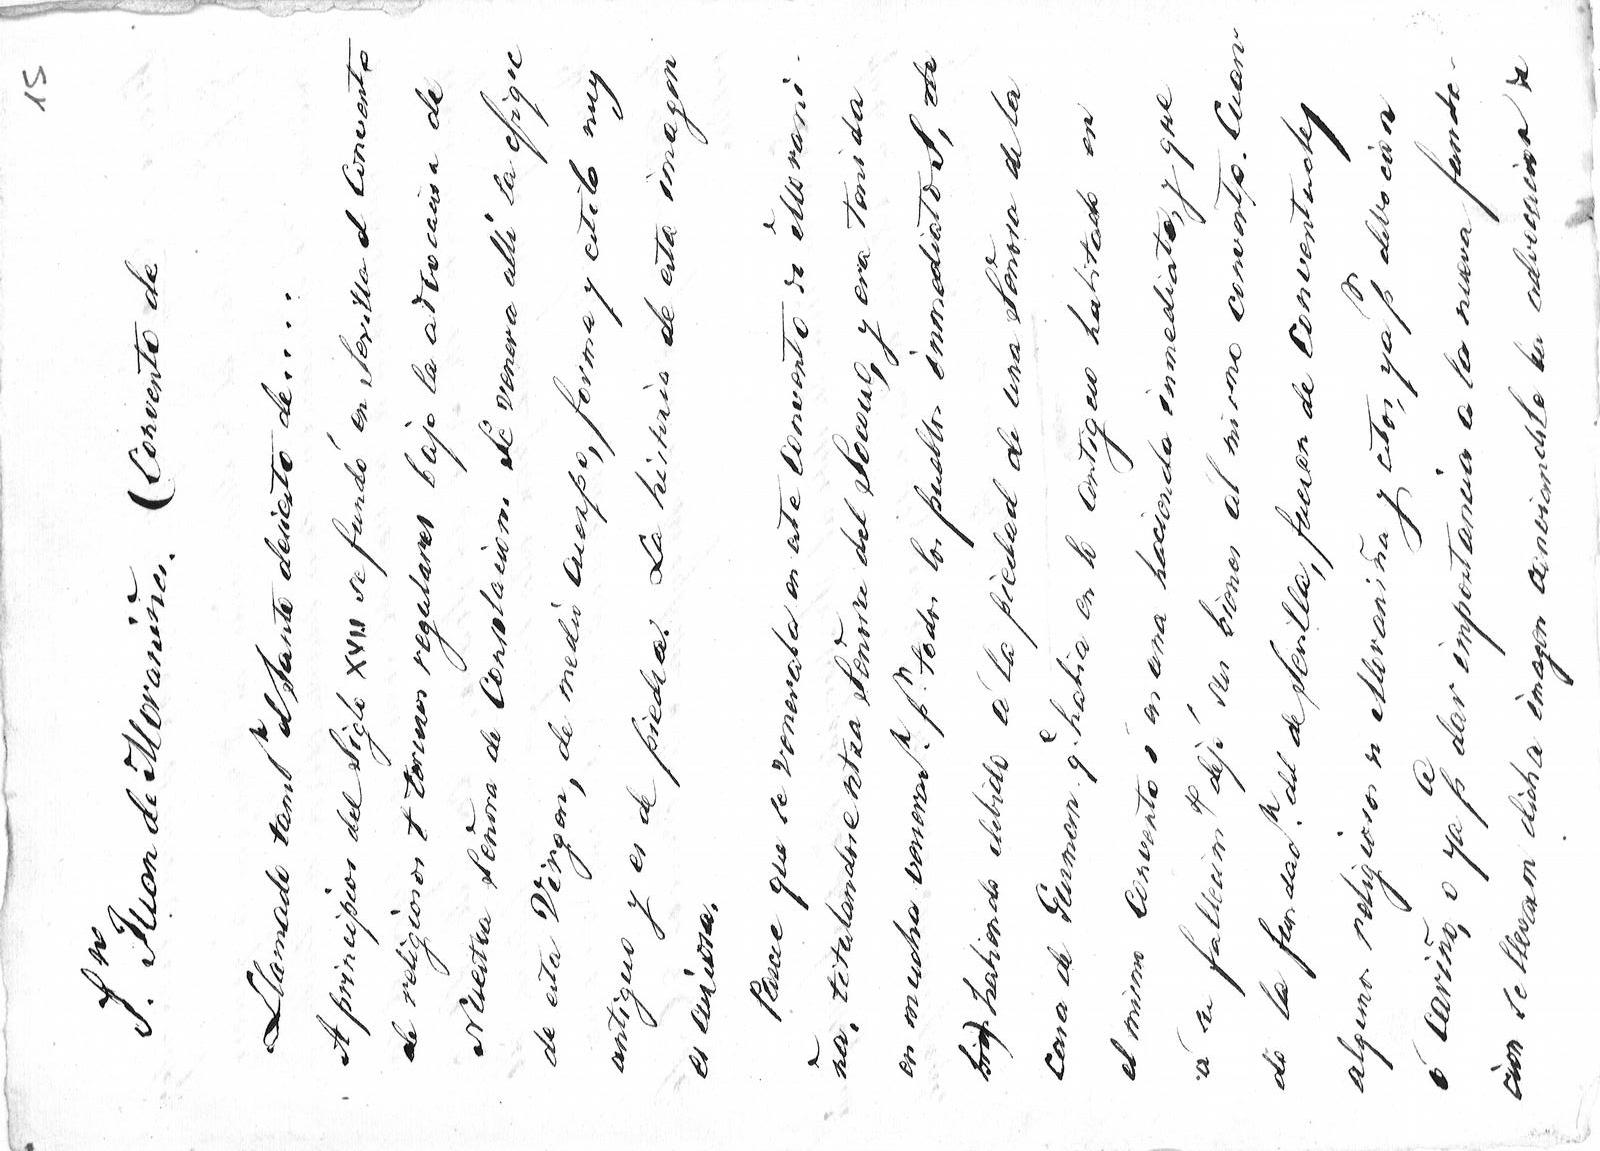 15
Sn. Juan de Morañina. (Convento de
Llamado tambn. el Santo desierto de....
A principios del Siglo XVII se fundó en Sevilla el Convento
de religiosos terceros regulares bajo la advocacion de
Nuestra Señora de Consolacion. Se venera allí la efigie
de esta Virgen, de medio cuerpo, forma y estilo muy
antiguo y es de piedra. La historia de esta imagen
es curiosa.
Parece que se veneraba en este convento de Morañi-
na. titulandose ntra Señora del Socorro, y era tenida
en mucha veneran. pr. todos los pueblos inmediatos,
habiendo debido a la piedad de una Señora de la
Casa de Guzman qe. habia en lo antiguo habitado en
el mismo convento o en una hacienda inmediata, y que
a su fallecim to dejó sus bienes al mismo convento. Cuan
do la fundacn. del de Sevilla, fueron de conventuales
algunos religiosos de Morañina y estos, ya pr devocion
ó cariño, o ya pa dar importancia a la nueva funda-
cion se llevaron dicha imagen cambiandole su advocacion de